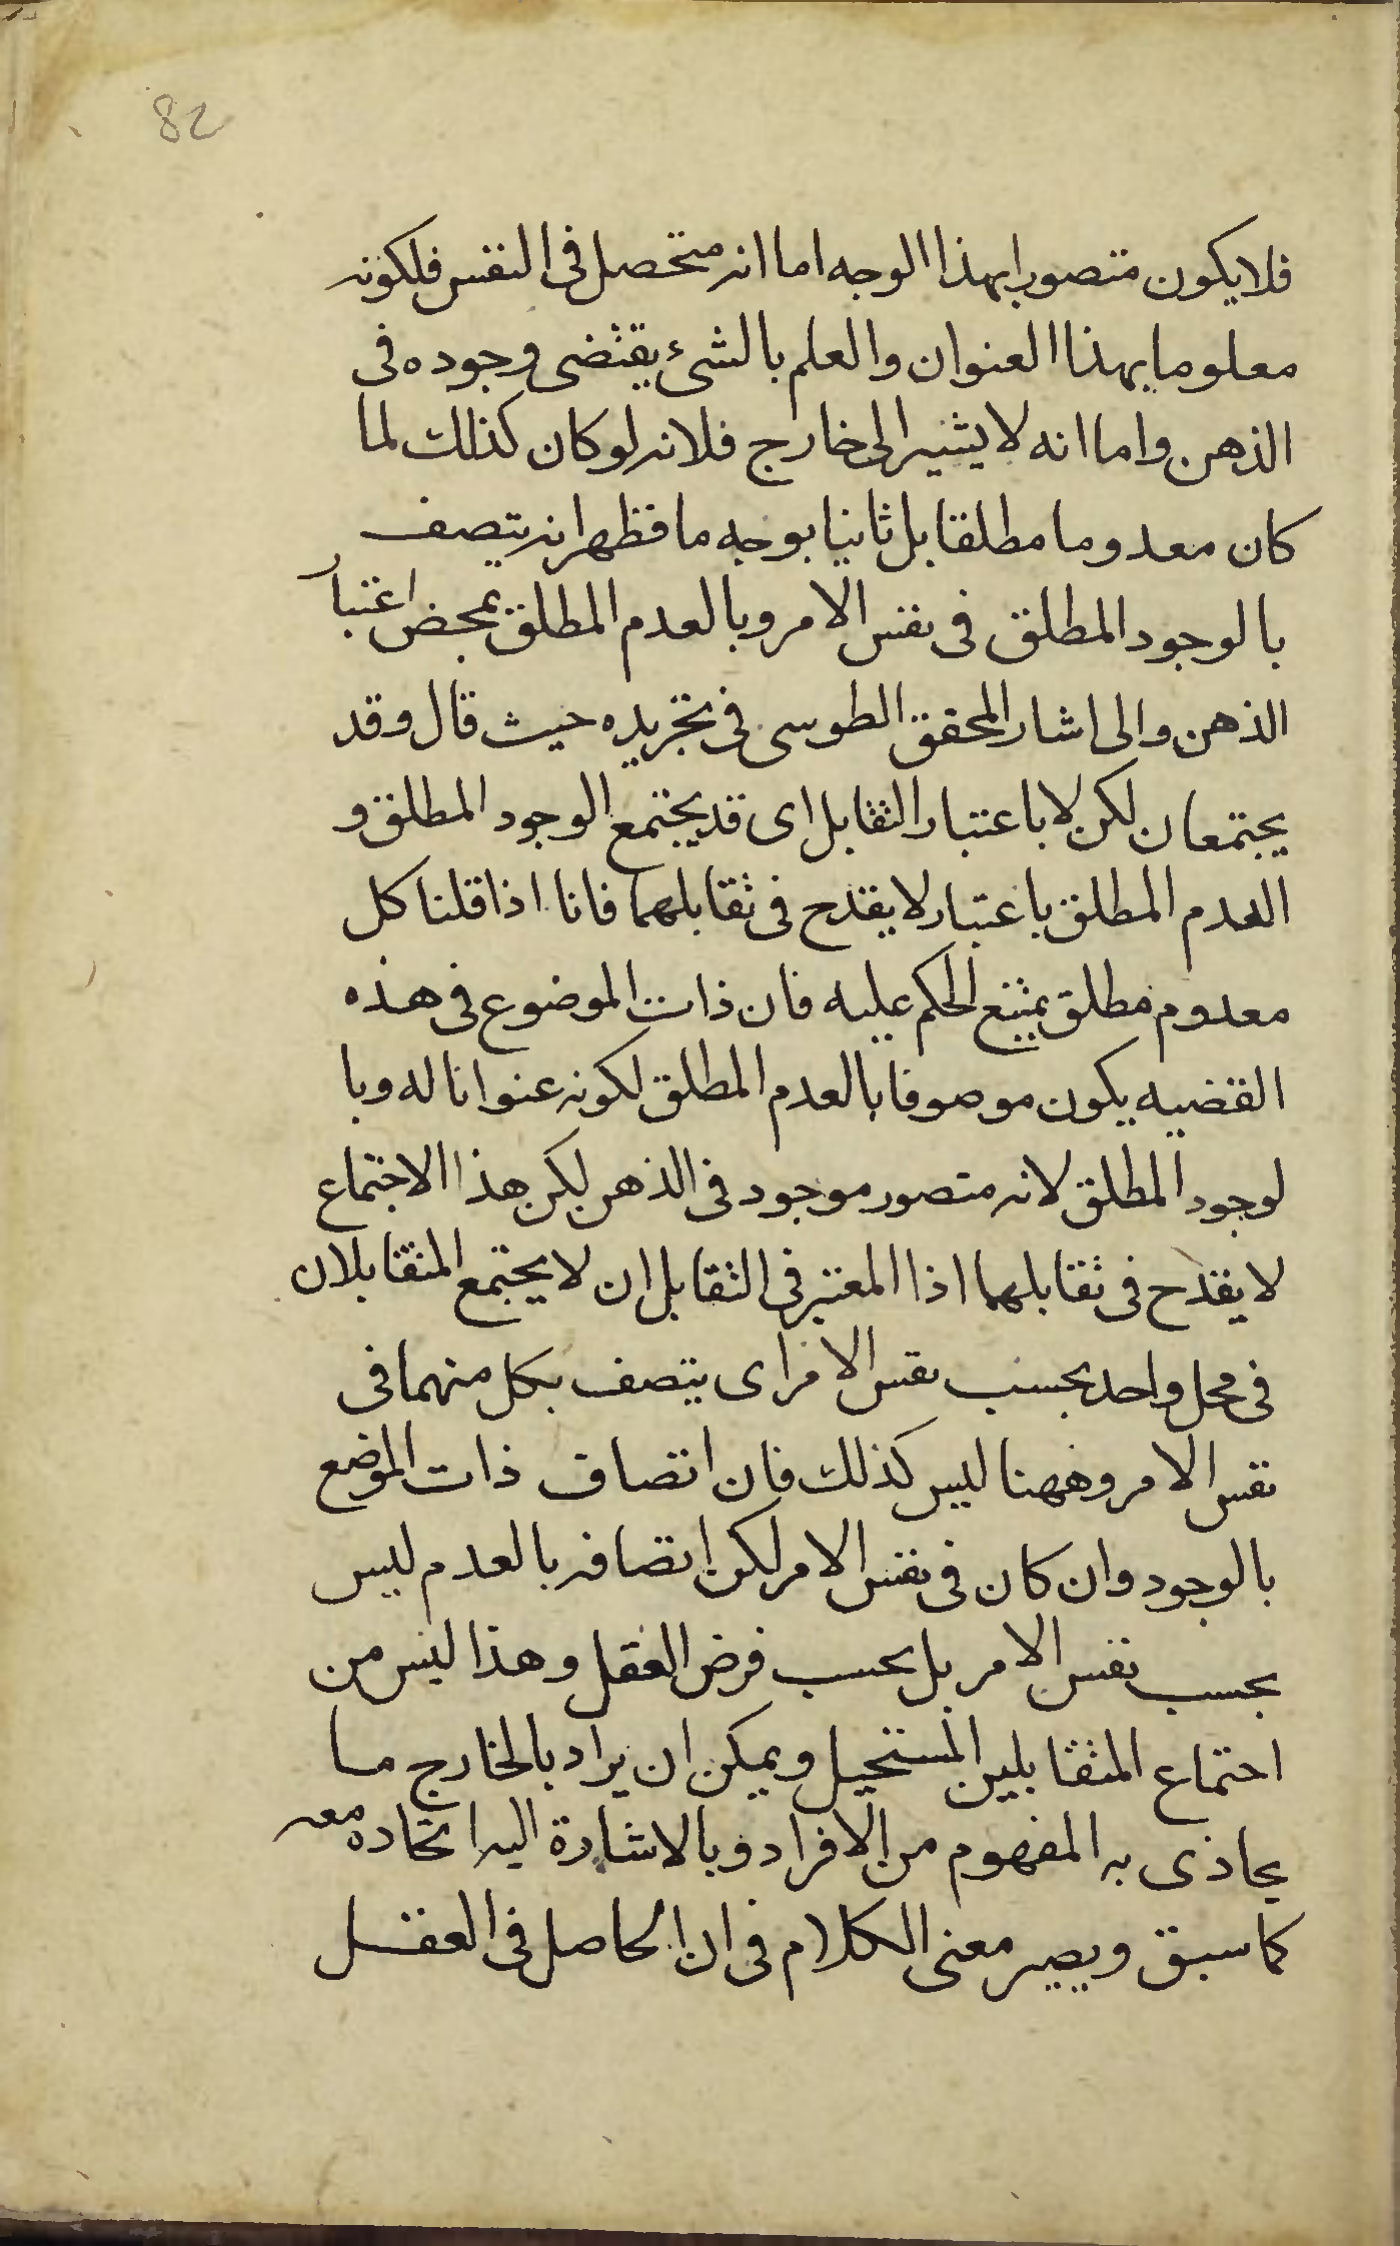 82
فلا يكون متصورا بهذا الوجه اما انه متحصل فى النفس فلكونه
معلوما بهذا العنوان والعلم بالشئ يقتضى وجوده فى
الذهن واما انه لا يشير الى خارج فلانه لو كان كذلك لما
كان معدوما مطلقا بل ثابتا بوجه ما فظهر انه يتصف
بالوجود المطلق فى نفس الامر وبالعدم المطلق بمحض اعتبار
الذهن والى اشار المحقق الطوسى فى تجريده حيث قال وقد
يجتمعان لكن لا باعتبار التقابل اى قد يجتمع الوجود المطلق و
العدم المطلق باعتبار لا يقدح فى تقابلهما فانا اذا قلنا كل
معدوم مطلق يمتنع الحكم عليه فان ذات الموضوع فى هذه
القضيه يكون موصوفا بالعدم المطلق لكونه عنوانا له وبا
لوجود المطلق لانه متصور موجود فى الذهن لكن هذا الاجتماع
لا يقدح فى تقابلهما اذا المعتبر فى التقابل ان لا يجتمع المتقابلان
فى محل واحد بحسب نفس الامر اى يتصف بكل منهما فى
نفس الامر وههنا ليس كذلك فان اتصاف ذات الموضع
بالوجود وان كان فى نفس الامر لكن اتصافه بالعدم ليس
بحسب نفس الامر بل بحسب فرض العقل وهذا ليس من
اجتماع المتقابلين المستحيل ويمكن ان يراد بالخارج ما
يحاذى به المفهوم من الافراد وبالاشارة اليه اتحاده معه
كما سبق ويصير معنى الكلام فى ان الحاصل فى العقل